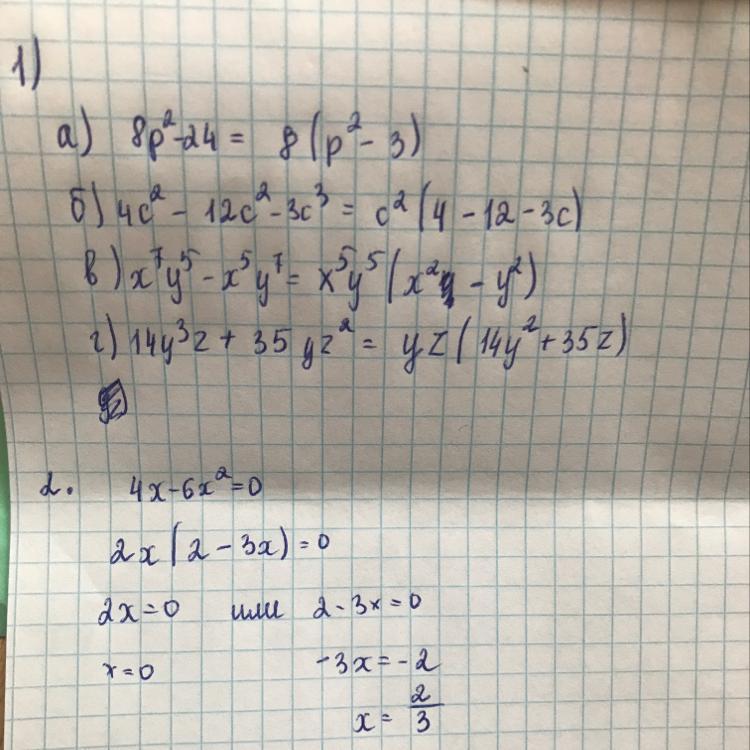 1)
а) 8p²-24 = 8(p²-3)
б) 4c² - 12c² - 3c³ = c²(4 - 12 - 3c)
в) x⁷y⁵ - x⁵y⁷ = x⁵y⁵(x² - y²)
г) 14y³z + 35yz² = yz(14y² + 35z)
2. 4x-6x²=0
2x(2-3x)=0
2x=0 или 2-3x=0
x=0 -3x=-2
x=2/3